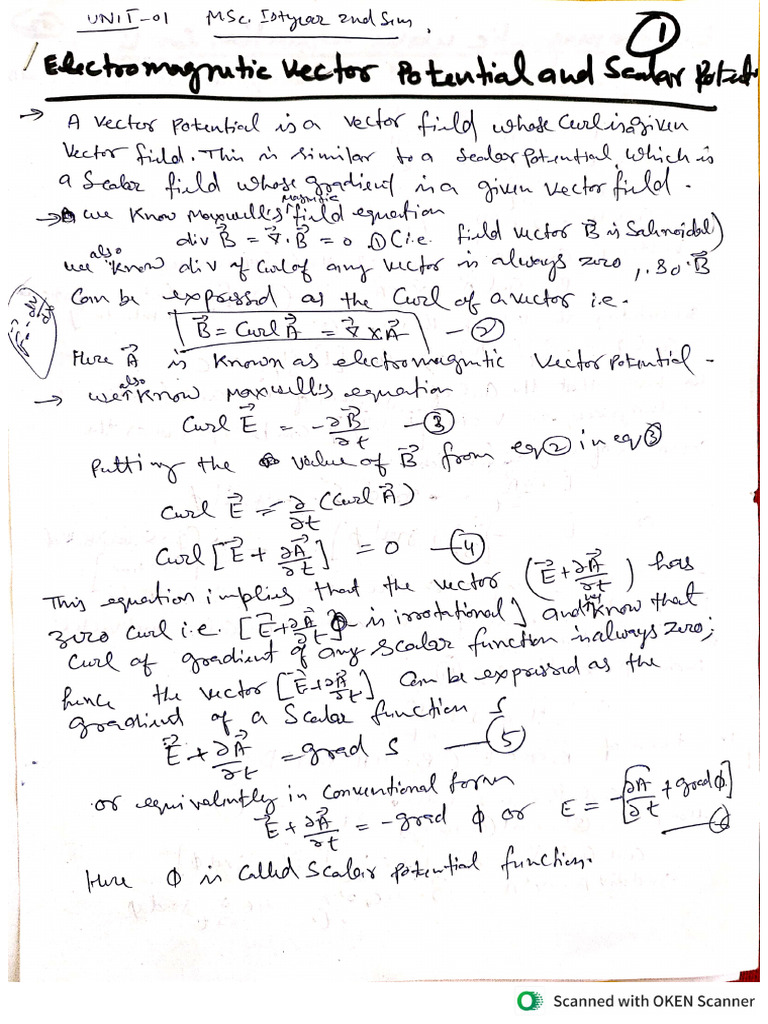 UNIT-01 MSc. Ist year 2nd Sem,
1
Electromagnetic Vector Potential and Scalar Potent
→ A vector potential is a vector field whose Curl is given
Vector field. This is similar to a Scalar potential, which is
a Scalar field whose gradient is a given vector field.
→ we know Maxwell's magnetic field equation
div B⃗ = ∇⃗.B⃗ = 0 ① (i.e. field vector B⃗ is Solenoidal)
we also know div of Curl of any vector is always zero, so B⃗
Can be expressed as the Curl of a vector i.e.
B⃗ = Curl A⃗ = ∇⃗ × A⃗ — ②
Here A⃗ is known as electromagnetic Vector potential -
→ we also know Maxwell's equation
Curl E⃗ = -∂B⃗/∂t — ③
Putting the value of B⃗ from eq ② in eq ③
Curl E⃗ = -∂/∂t (Curl A⃗)
Curl [E⃗ + ∂A⃗/∂t] = 0 — ④
This equation implies that the vector (E⃗ + ∂A⃗/∂t) has
zero curl i.e. [E⃗ + ∂A⃗/∂t is irrotational] and we know that
Curl of gradient of any scalar function is always zero;
hence the vector [E⃗ + ∂A⃗/∂t] Can be expressed as the
gradient of a Scalar function S
E⃗ + ∂A⃗/∂t = grad S — ⑤
or equivalently in Conventional form
E⃗ + ∂A⃗/∂t = -grad ϕ or E = -[∂A/∂t + grad ϕ] — ⑥
Here ϕ is called Scalar potential function.
Scanned with OKEN Scanner